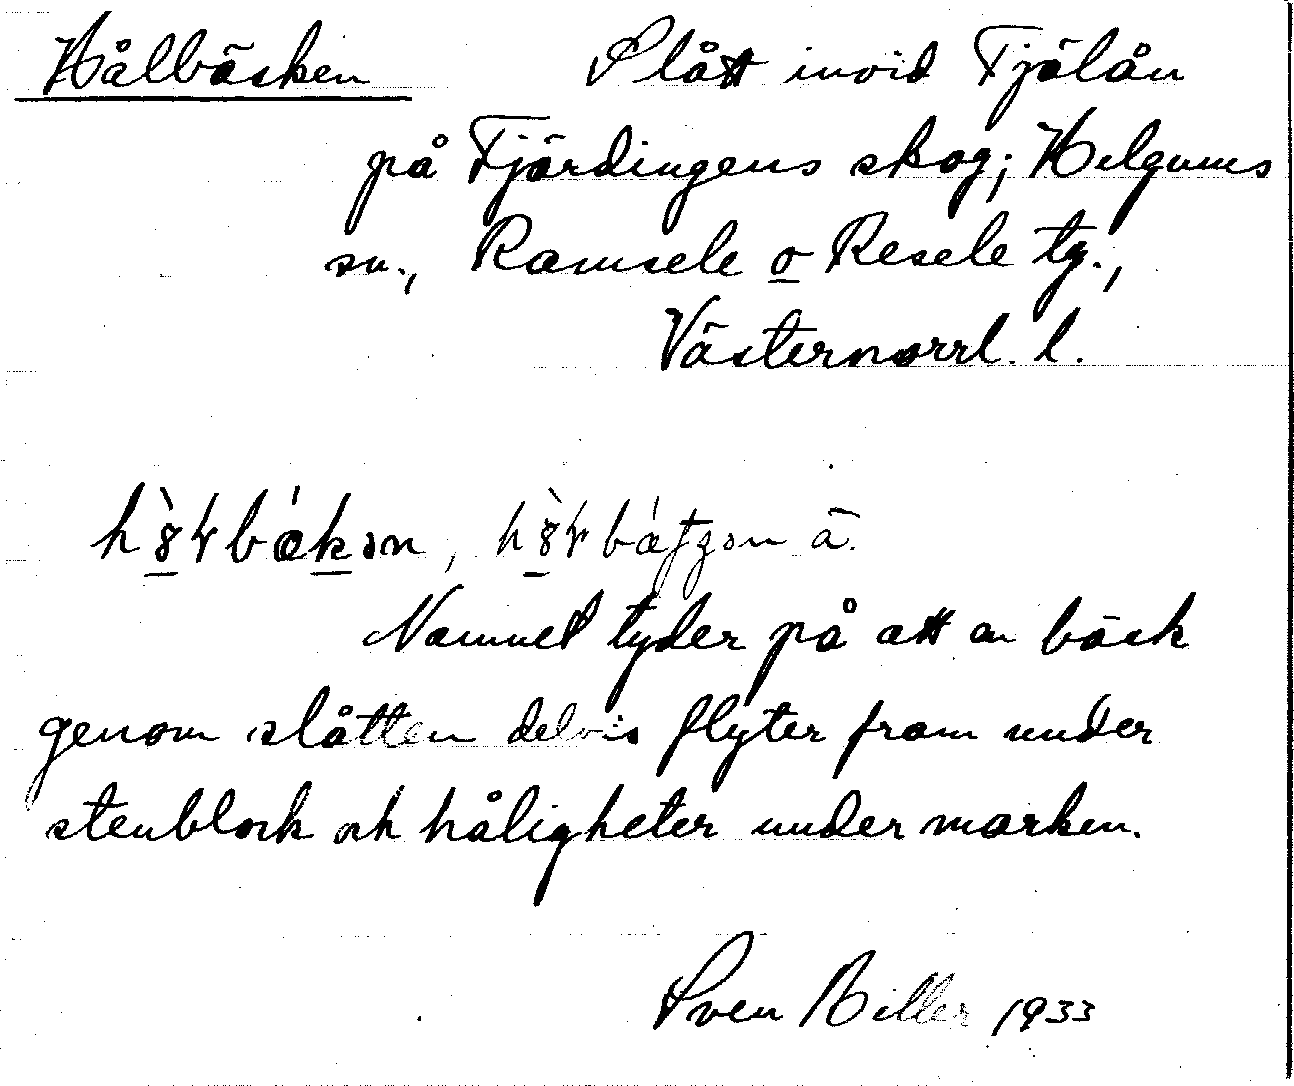 Hålbäcken Slått invid Fjälån
på Fjärdingens skog; Helgums
sn., Ramsele o Resele tg.,
Västernorrl. l.
Namnet tyder på att en bäck
genom slåtten delvis flyter fram under
stenblock och håligheter under marken.
Sven Biller 1933